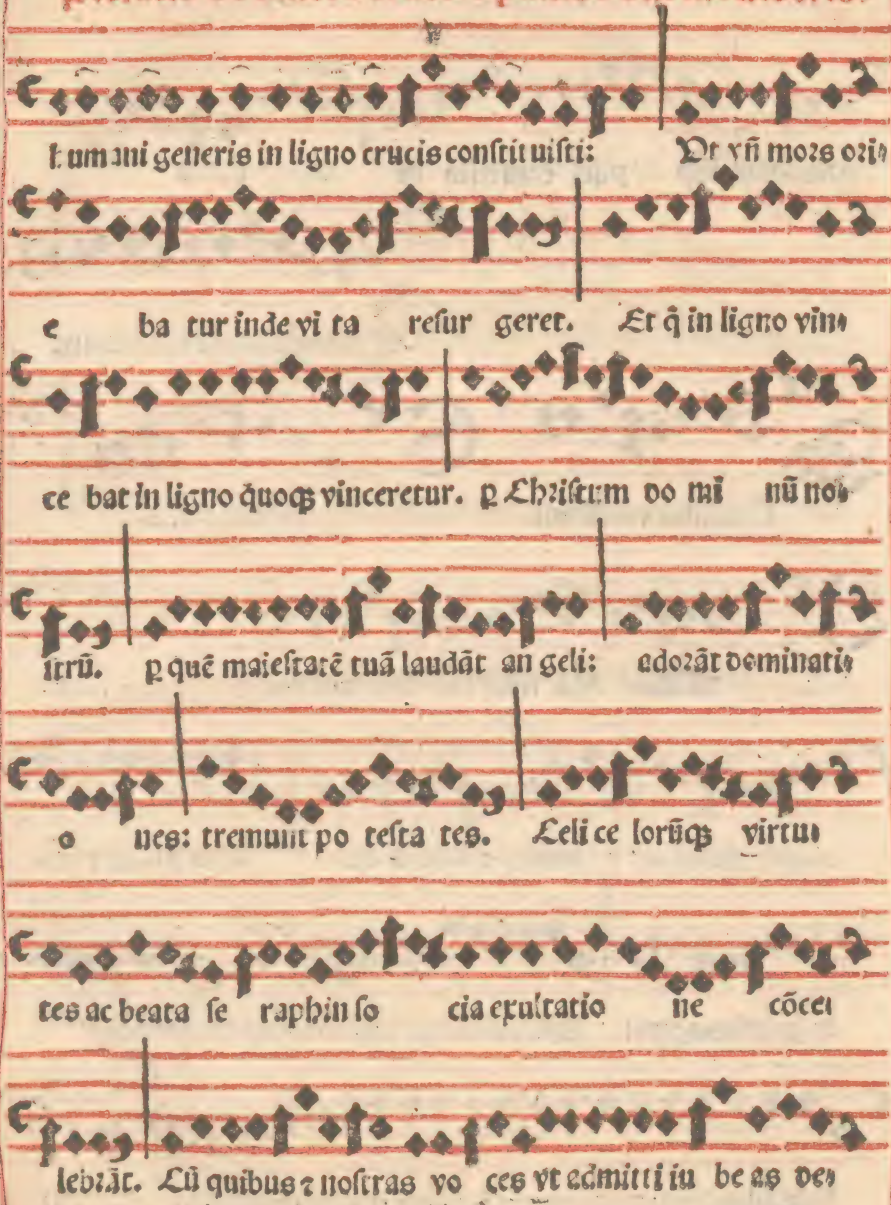 humani generis in ligno crucis conſtit uiſti: Ut vñ mors orie
e ba tur inde vi ta reſur geret. Et q̃ in ligno vin⸗
ce bat in ligno quoqꝫ vinceretur. ꝑ Chriſtum do mi nũ no⸗
ſtrũ. ꝑ quẽ maieſtatẽ tuã laudãt an geli: adorãt dominati⸗
o nes: tremunt po teſta tes. Celi ce lorũqꝫ virtu⸗
tes ac beata ſe raphin ſo cia exultatio ne cõce⸗
lebrãt. Cũ quibus ⁊ noſtras vo ces vt admitti iu be as de⸗